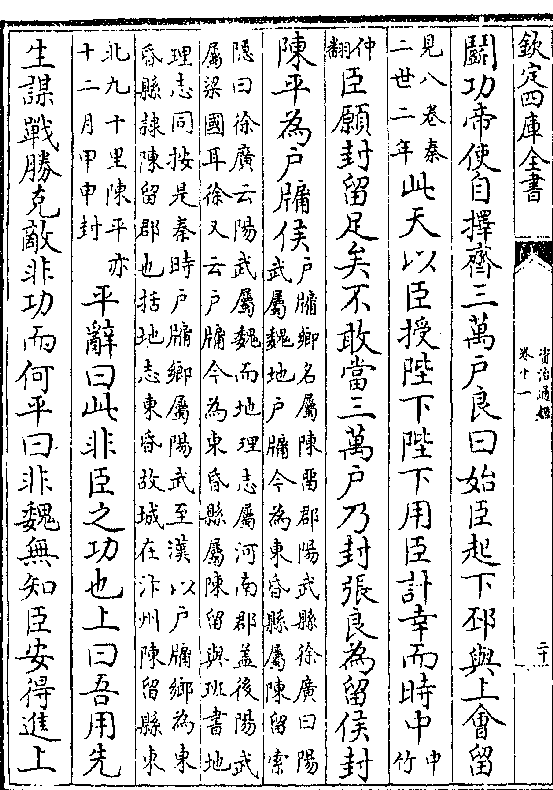 欽定四庫全書
資治通鑑
卷十一
二十
鬭功帝使自擇齊三萬戶良曰始臣起下邳與上會留
見八卷秦
二世二年
此天以臣授陛下陛下用臣計幸而時中
中竹
仲翻
臣願封留足矣不敢當三萬戶乃封張良為留侯封
陳平為戶牖侯
戶牖鄉名屬陳留郡陽武縣徐廣曰陽
武屬魏地戶牖今為東昏縣屬陳留索
隱曰徐廣云陽武屬魏而地理志屬河南郡蓋後陽武
屬梁國耳徐又云戶牖今為東昏縣屬陳留與班書地
理志同按是秦時戶牖鄉屬陽武至漢以戶牖鄉為東
昏縣隸陳留郡也括地志東昏故城在汴州陳留縣東
北九十里陳平亦
十二月甲申封
平辭曰此非臣之功也上曰吾用先
生謀戰勝克敵非功而何平曰非魏無知臣安得進上